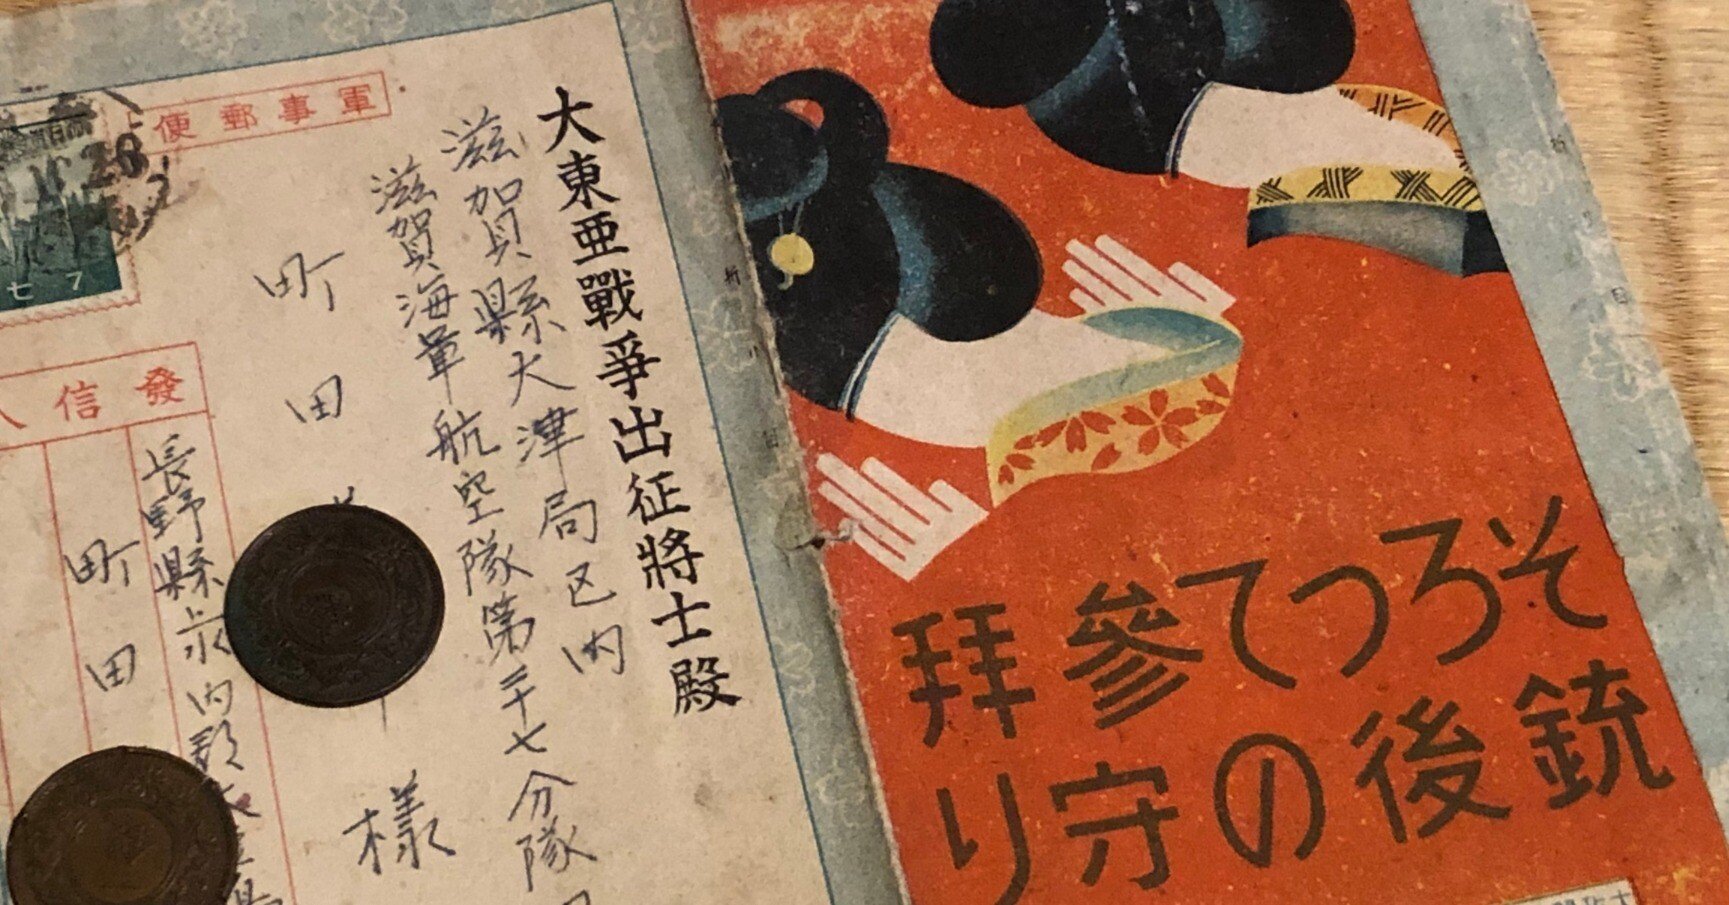 軍事郵便
大東亜戰爭出征將士殿
滋賀縣大津局区内
滋賀海軍航空隊第三十七分隊
町田
様
發信人
長野縣
町田
七
7
そろつて參拜
銃後の守り